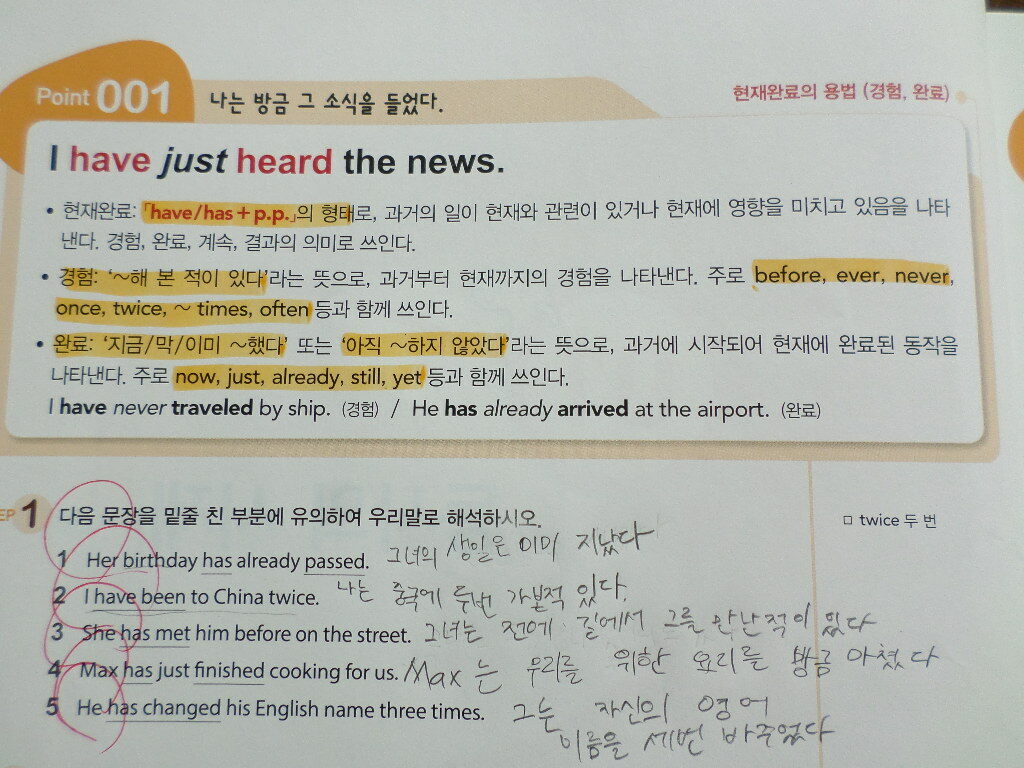 Point 001 나는 방금 그 소식을 들었다.
현재완료의 용법 (경험, 완료)
I have just heard the news.
• 현재완료: 「have/has+p.p.」의 형태로, 과거의 일이 현재와 관련이 있거나 현재에 영향을 미치고 있음을 나타
낸다. 경험, 완료, 계속, 결과의 의미로 쓰인다.
• 경험: ‘~해 본 적이 있다’라는 뜻으로, 과거부터 현재까지의 경험을 나타낸다. 주로 before, ever, never,
once, twice, ~ times, often 등과 함께 쓰인다.
• 완료: ‘지금/막/이미 ~했다’ 또는 ‘아직 ~하지 않았다’라는 뜻으로, 과거에 시작되어 현재에 완료된 동작을
나타낸다. 주로 now, just, already, still, yet 등과 함께 쓰인다.
I have never traveled by ship. (경험) / He has already arrived at the airport. (완료)
EP 1 다음 문장을 밑줄 친 부분에 유의하여 우리말로 해석하시오.
□ twice 두 번
1 Her birthday has already passed. 그녀의 생일은 이미 지났다
2 I have been to China twice. 나는 중국에 두번 가본적 있다.
3 She has met him before on the street. 그녀는 전에 길에서 그를 만난적이 있다
4 Max has just finished cooking for us. Max는 우리를 위한 요리를 방금 마쳤다
5 He has changed his English name three times. 그는 자신의 영어
이름을 세번 바꾸었다